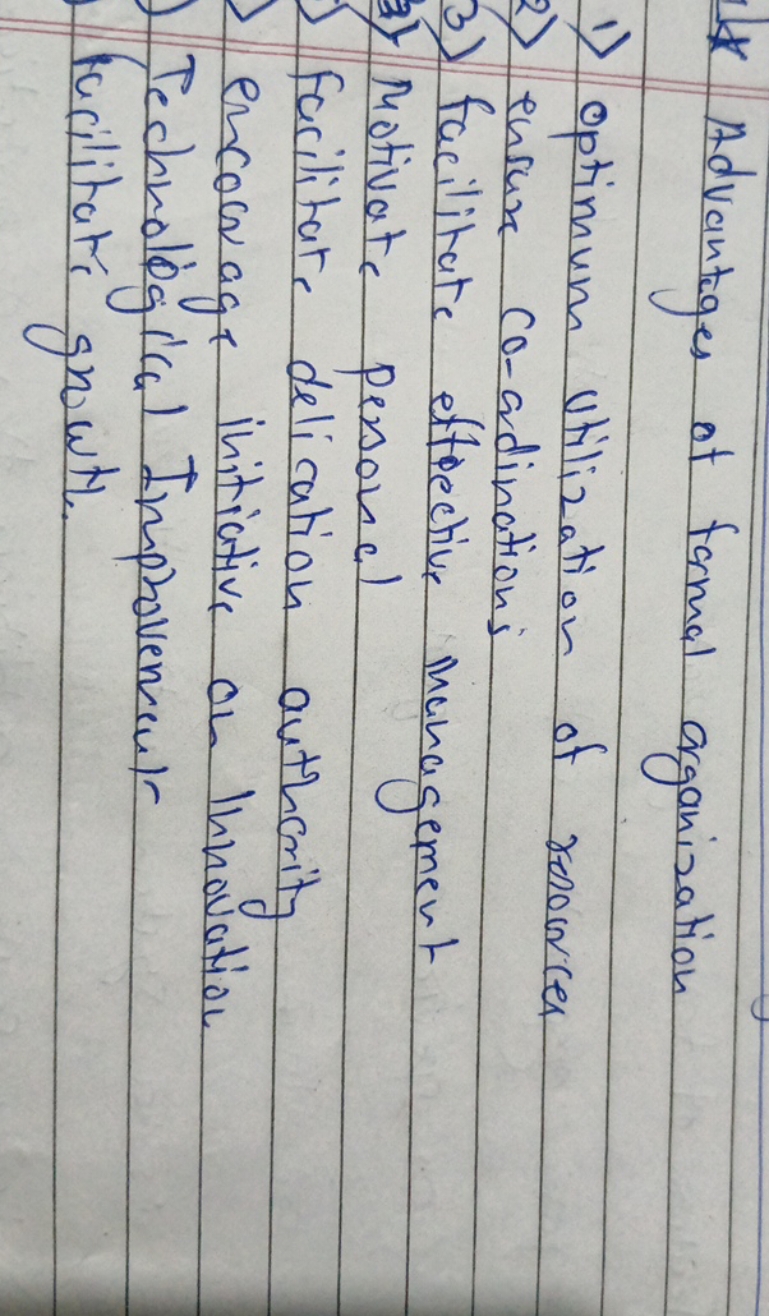 Advantages of formal organization
1) optimum utilization of resources
2) ensure co-ordinations
3) facilitate effective management
Motivate personal
facilitate delication authority
encourage initiative on Innovation
Technological Improvement
facilitate growth.